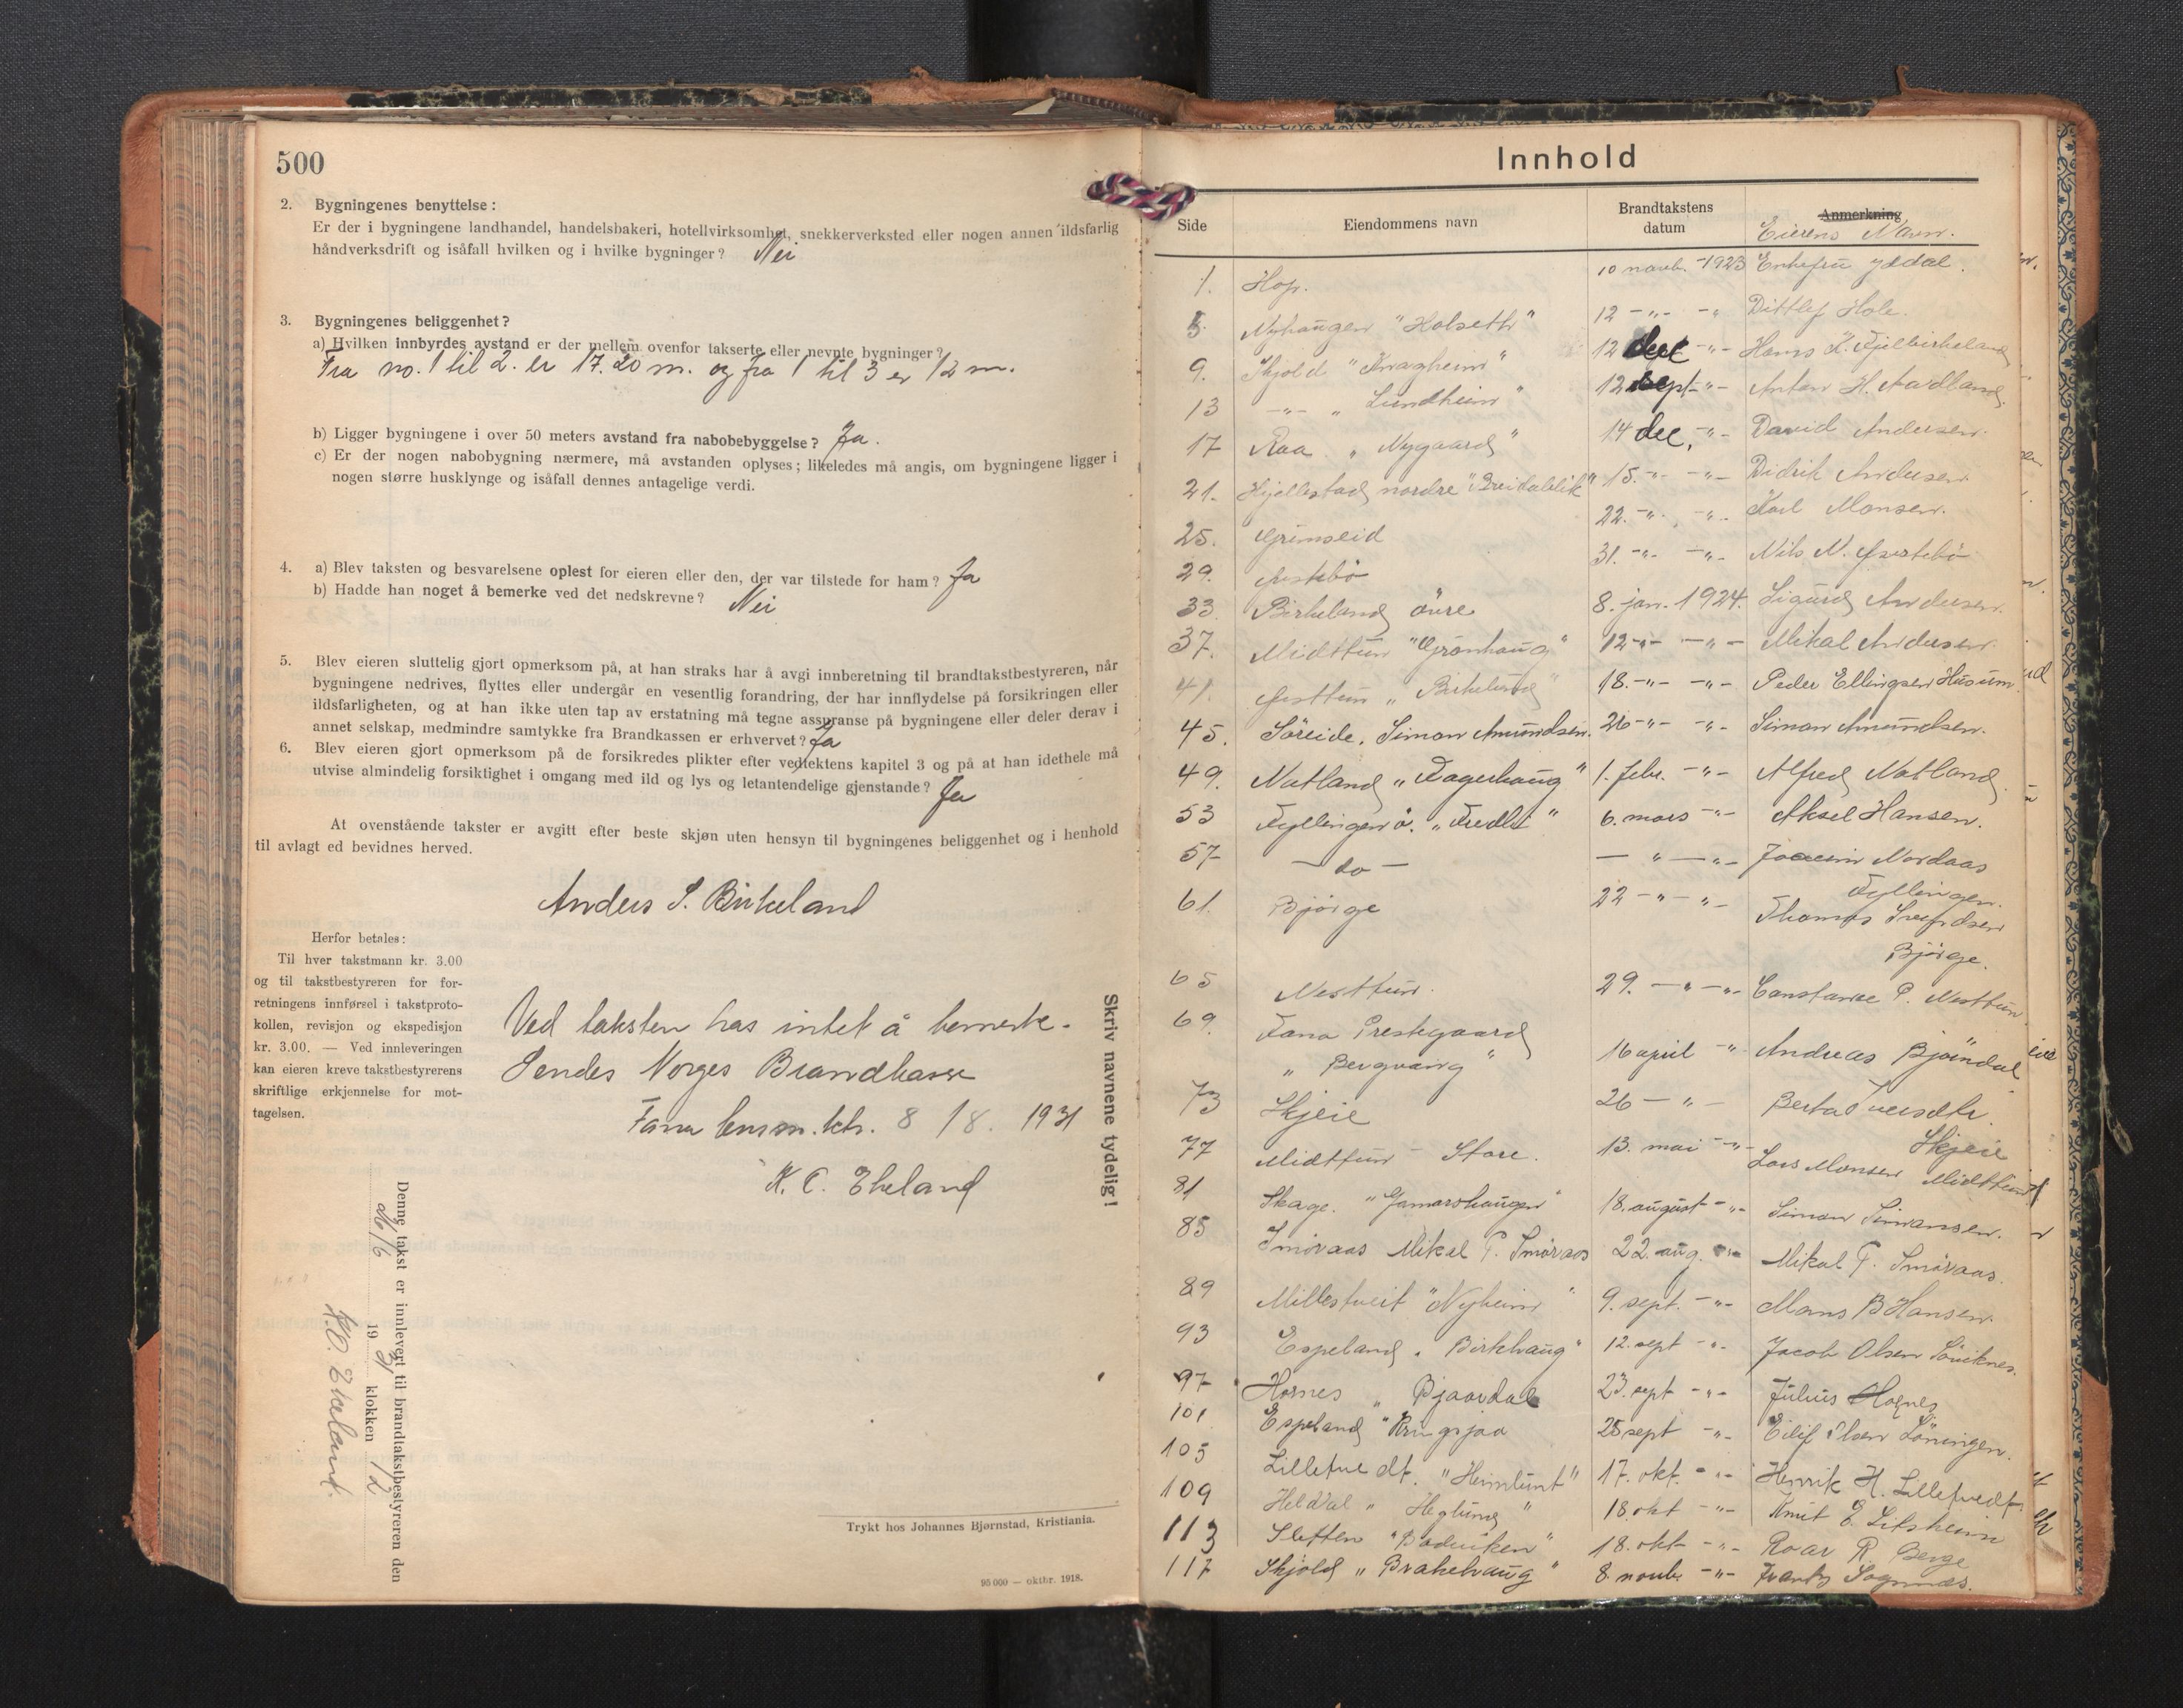 500
2. Bygningenes benyttelse:
Er der i bygningene landhandel, handelsbakeri, hotellvirksomhet, snekkerverksted eller nogen annen ildsfarlig
håndverksdrift og isåfall hvilken og i hvilke bygninger? Nei
3. Bygningenes beliggenhet?
a) Hvilken innbyrdes avstand er der mellem ovenfor takserte eller nevnte bygninger?
Fra no. 1 til 2. er 17.20 m. og fra 1 til 3 er 12 m.
b) Ligger bygningene i over 50 meters avstand fra nabobebyggelse? Ja.
c) Er der nogen nabobygning nærmere, må avstanden oplyses; likeledes må angis, om bygningene ligger i
nogen større husklynge og isåfall dennes antagelige verdi.
4. a) Blev taksten og besvarelsene oplest for eieren eller den, der var tilstede for ham? Ja
b) Hadde han noget å bemerke ved det nedskrevne? Nei
5. Blev eieren sluttelig gjort opmerksom på, at han straks har å avgi innberetning til brandtakstbestyreren, når
bygningene nedrives, flyttes eller undergår en vesentlig forandring, der har innflydelse på forsikringen eller
ildsfarligheten, og at han ikke uten tap av erstatning må tegne assuranse på bygningene eller deler derav i
annet selskap, medmindre samtykke fra Brandkassen er erhvervet? Ja
6. Blev eieren gjort opmerksom på de forsikredes plikter efter vedtektens kapitel 3 og på at han idethele må
utvise almindelig forsiktighet i omgang med ild og lys og letantendelige gjenstande? Ja
At ovenstående takster er avgitt efter beste skjøn uten hensyn til bygningenes beliggenhet og i henhold
til avlagt ed bevidnes herved.
Anders S. Birkeland
Herfor betales:
Til hver takstmann kr. 3.00
og til takstbestyreren for for-
retningens innførsel i takstproto-
kollen, revisjon og ekspedisjon
kr. 3.00. — Ved innleveringen
kan eieren kreve takstbestyrerens
skriftlige erkjennelse for mot-
tagelsen.
Ved taksten has intet å bemerke.
Sendes Norges Brandkasse
Fana lensm.ktr. 8/8. 1931
K. O. Ekeland
Skriv navnene tydelig!
Denne takst er innlevert til brandtakstbestyreren den
19 31 klokken 12
K.O. Ekeland.
Trykt hos Johannes Bjørnstad, Kristiania.
95 000 — oktbr. 1918.
Innhold
Side Eiendommens navn Brandtakstens datum Anmerkning
Eierens Navn.
1. Hop. 10 novb. - 1923 Enkefru Yddal.
5. Nyhaugen "Holseth" 12 -"- -" Dittlef Hole.
9. Skjold "Kragheim" 12 dec -"- Hans K. Fjellbirkeland
13 -"- "Lundheim" 12 sept -"- Anton H. Aadland.
17 Raa "Nygaard" 14 dec, -"- David Andersen.
21. Hjellestad nordre "Breidablik" 15. -"- -"- Didrik Andersen
25. Grimseid 22. -"- -"- Karl Monsen.
29. 31. -"- -"- Nils N.
33. Birkeland övre 8. jan. 1924. Sigurd Andersen.
37. Midttun "Grönhaug" 12 -"- -"- Mikal Andersen.
41. "Birkelund" 18. -"- -"- Peder Ellingsen Husum.
45. Söreide, Simon Amundsen. 26 -"- -"- Simon Amundsen.
49. Natland "Fagerhaug" 1. febr. -"- Alfred Natland.
53 Fyllingen ö. "Fredli" 6. mars -"- Aksel Hansen.
57 - do - - " - "- Joacim Nordaas
Fyllingen.
61. Bjørge 22 -"- "- Thomas
Bjørge.
65 Nesttun. 29. - " - "- Constanse P. Nesttun.
69. Fana Prestegaard
"Bergvang" 16 april -" Andreas Bjöndal
73 Skjeie 26 - " - Berta Iversdtr.
Skjeie
77 Midttun - Store. 13. mai -"- Lars Monsen Midttun
81 Skage. "Gamarshaugen" 18. august -"- Simon Simonsen.
85 Smöraas Mikal T. Smöraas 22. aug. -"- Mikal T. Smöraas.
89 Millestveit "Nyheim" 9. sept. -"- Mons B Hansen.
93 Espeland "Birkhaug" 12. sept -"- Jacob Olsen Söviknes.
97 Hornes "Bjaardal 23. sept -"- Julius
101 Espeland "Kringsjaa 25 sept -"- Eilif Olsen Löningen.
105 Lilletvedt. "Heimlunt" 17. okt. -"- Henrik H. Lilletvedt.
109 Heldal "Heglund" 18. okt -"- Knut E. Litsheim
113 Sletten "Badviken" 18. okt -"- Roar R. Berge
117 Skjold "Brakehaug" 8. novb. -"- Frantz Sognnæs.